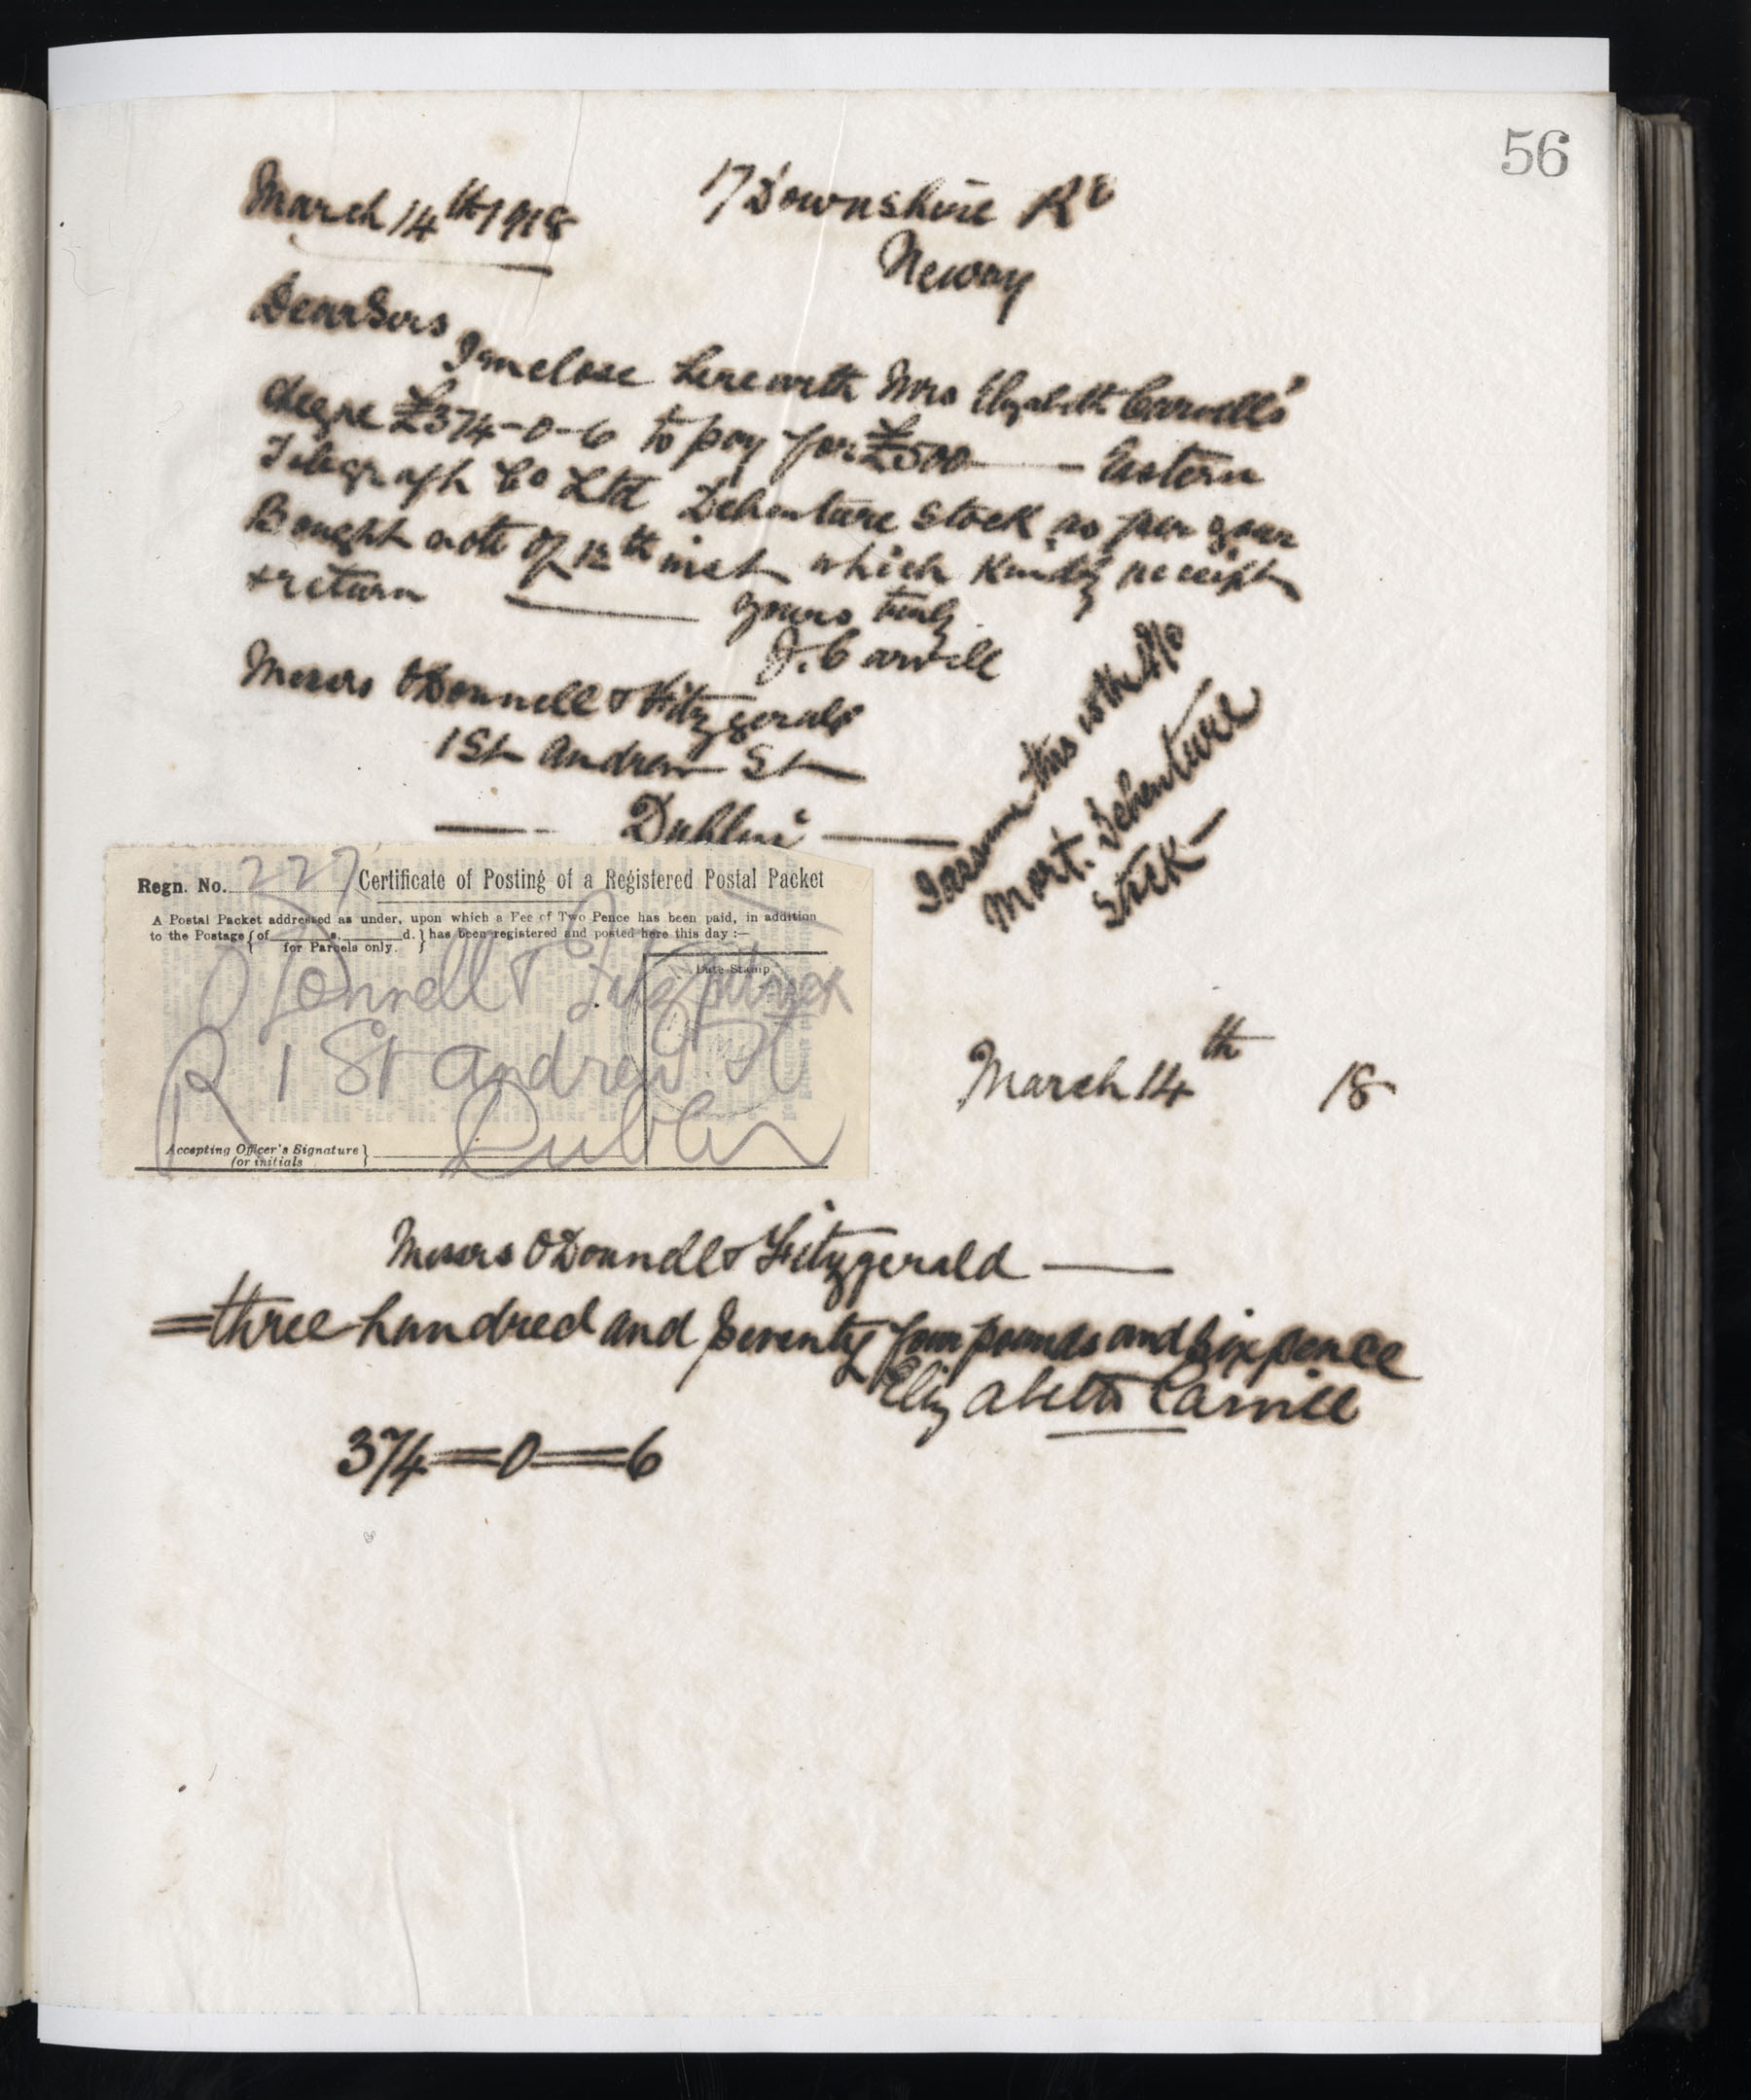 56
March 14th 1918
17 Downshire Rd
Newry
Dear Sirs
I enclose herewith Mrs Elizabeth Carvill's
cheque £374-0-6 to pay for £500 — Eastern
Telegraph Co Ltd Debenture stock as per your
Bought note of 12th inst which kindly receipt
& return — yours truly
J. Carvill
Messrs O'Donnell & Fitzgerald
1 St Andrew St
— Dublin —
I assume this is the 4%
Mort. Debenture
Stock —
Regn. No. 227 Certificate of Posting of a Registered Postal Packet
A Postal Packet addressed as under, upon which a Fee of Two Pence has been paid, in addition
to the Postage { of s. d. } has been registered and posted here this day :—
for Parcels only.
Date Stamp
O'Donnell & Fitzpatrick
R 1 St Andrew St
Dublin
Accepting Officer's Signature }
or initials
March 14th 18
Messrs O'Donnell & Fitzgerald —
= three hundred and seventy four pounds and six pence
Elizabeth Carvill
374=0=6